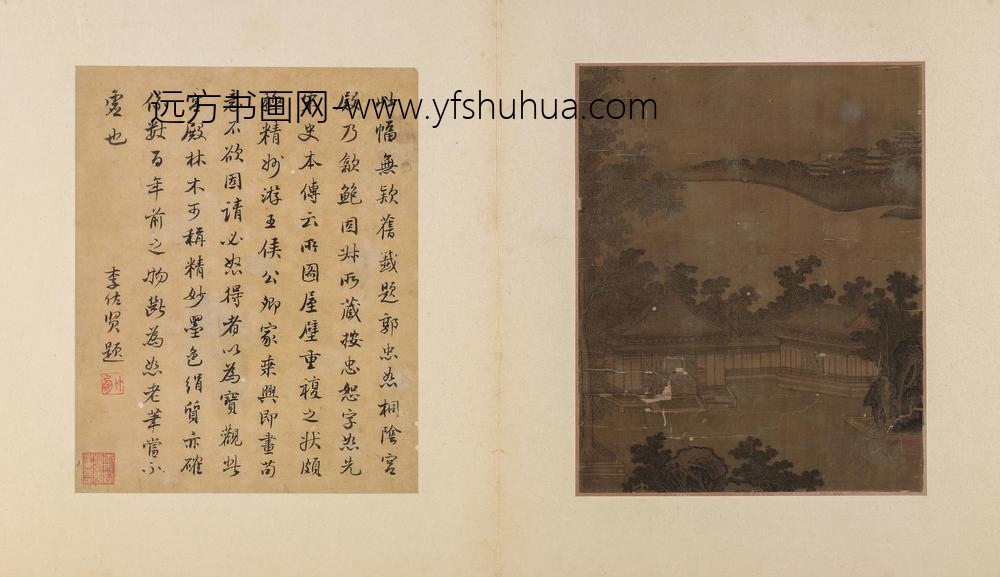 远方书画网--www.yfshuhua.com
此幅無款舊籤題郭忠恕桐陰宮
殿乃歙鮑固叔所藏按忠恕字恕先
宋史本傳云所圖屋壁重複之狀頗
極精妙游王侯公卿家乘興即畫苟
意不欲固請必怒得者以為寶觀此
宮殿林木可稱精妙墨色絹質亦確
係數百年前之物斷為恕老筆當不
虛也
李佐賢題